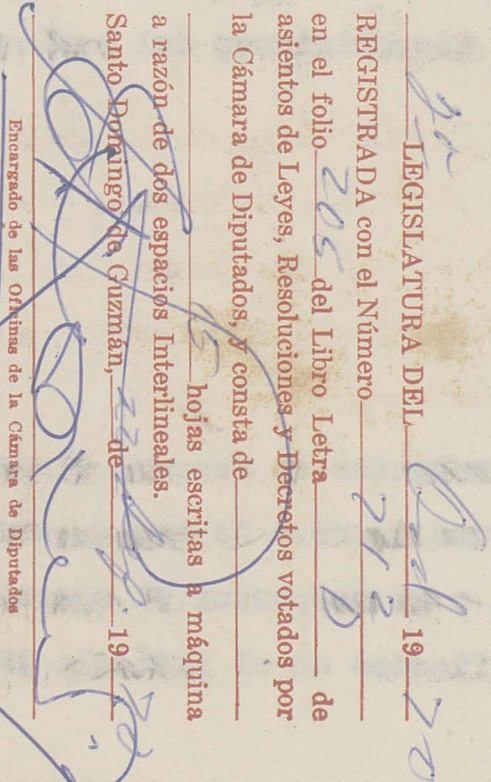 LEGISLATURA DEL 19 70
REGISTRADA con el Número
en el folio 205 del Libro Letra D de
asientos de Leyes, Resoluciones y Decretos votados por
la Cámara de Diputados, y consta de
hojas escritas a máquina
a razón de dos espacios Interlineales.
Santo Domingo de Guzmán, de 19 70
Encargado de las Oficinas de la Cámara de Diputados